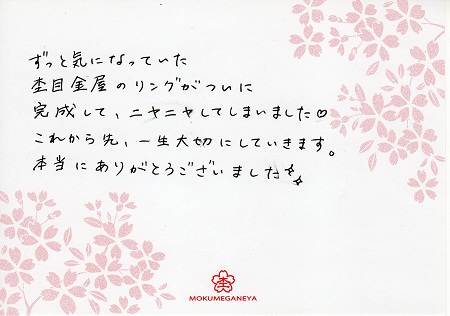 ずっと気になっていた
杢目金屋のリングがついに
完成して、ニヤニヤしてしまいました♡
これから先、一生大切にしていきます。
本当にありがとうございました
杢
MOKUMEGANEYA